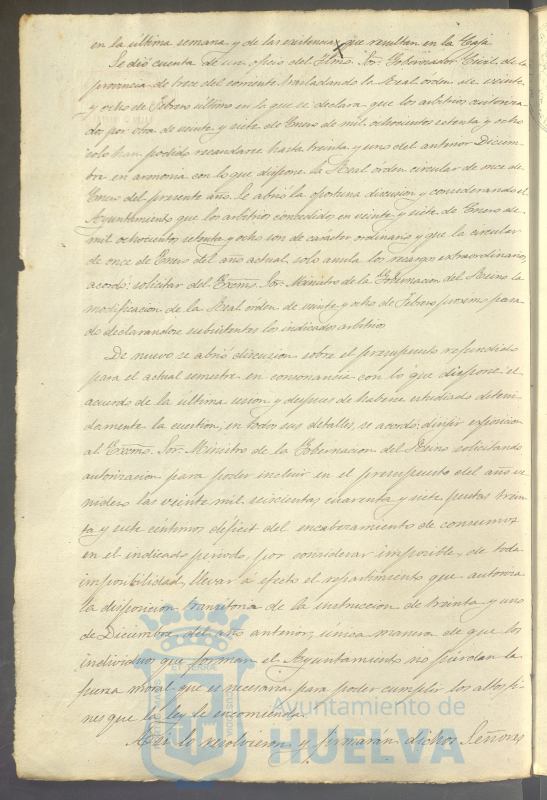 en la última semana y de las existencias que resultan en la Caja
Se dió cuenta de un oficio del Ilmo. Sor. Gobernador Civil de la
provincia de trece del corriente trasladando la Real orden de veinte
y ocho de Febrero último en la que se declara que los arbitrios autoriza-
dos por otra de veinte y siete de Enero de mil ochocientos setenta y ocho
solo han podido recaudarse hasta treinta y uno del anterior Diciem-
bre en armonia con lo que dispone la Real órden circular de once de
Enero del presente año. Se abrió la oportuna discusion y considerando el
Ayuntamiento que los arbitrios concedidos en veinte y siete de Enero de
mil ochocientos setenta y ocho son de carácter ordinario y que la circular
de once de Enero del año actual solo anula los recargos extraordinarios,
acordó: solicitar del Excmo. Sor. Ministro de la Gobernacion del Reino la
modificacion de la Real órden de veinte y ocho de Febrero proximo pasa-
do declarandose subsistentes los indicados arbitrios
De nuevo se abrió discusion sobre el presupuesto refundido
para el actual semestre en consonancia con lo que dispone el
acuerdo de la última sesion y despues de haberse estudiado deteni-
damente la cuestion, en todos sus detalles, se acordó: dirijir exposicion
al Excmo. Sor. Ministro de la Gobernacion del Reino solicitando
autorizacion para poder incluir en el presupuesto del año ve-
nidero las veinte mil seiscientas cuarenta y siete pesetas trein-
ta y siete céntimos déficit del encabezamiento de consumos
en el indicado período, por considerar imposible, de toda
imposibilidad, llevar á efecto el repartimiento que autoriza
la disposicion transitoria de la instruccion de treinta y uno
de Diciembre del año anterior, única manera de que los
individuos que forman el Ayuntamiento no pierdan la
fuerza moral que es necesaria para poder cumplir los altos fi-
nes que la ley le encomienda.
Así lo resolvieron y firmarán dichos Señores
Ayuntamiento de
HUELVA